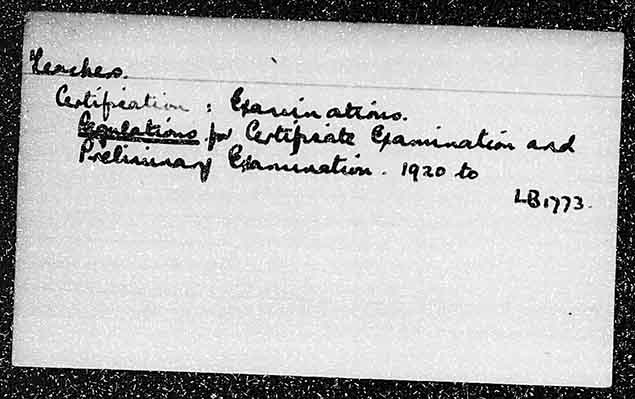 Teachers.
Certification : Examinations.
Regulations for Certificate Examination and
Preliminary Examination. 1920 to
LB1773.